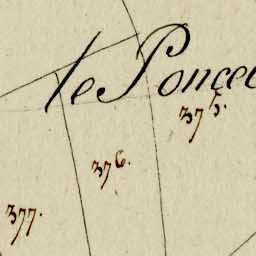 le Poncet
375.
376.
377.